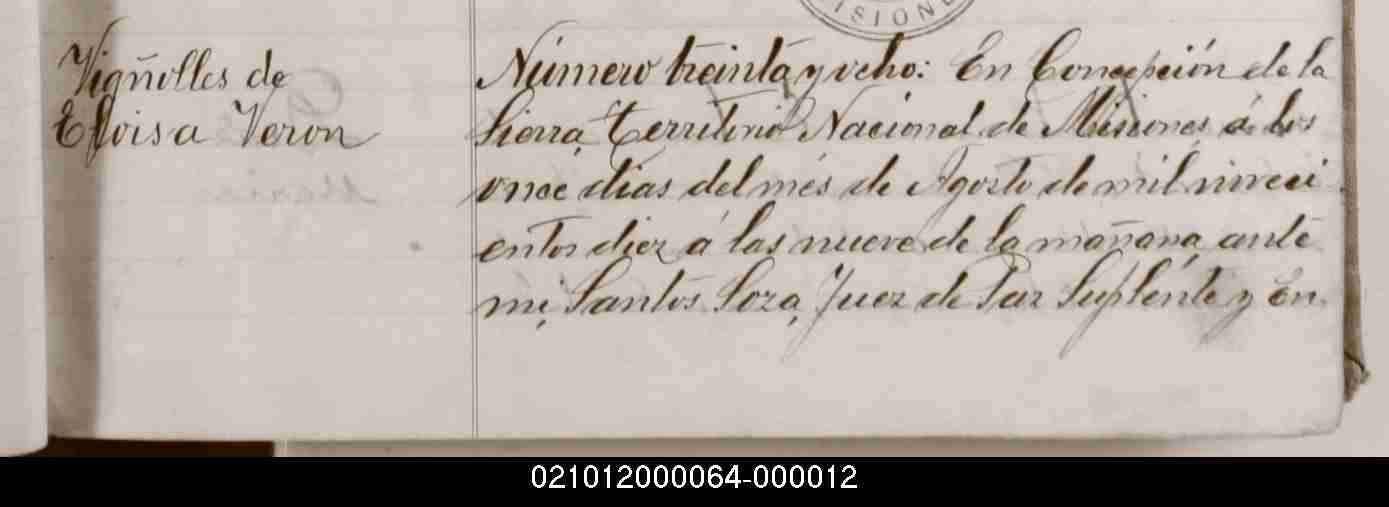 ISIONE
Vigñolles de
Eloisa Veron
Número treinta y ocho: En Concepción de la
Sierra, Territorio Nacional de Misiones á los
once dias del més de Agosto de mil noveci
entos diez á las nueve de la mañana, ante
mi, Santos Soza, Juez de Paz Suplente y En
021012000064-000012